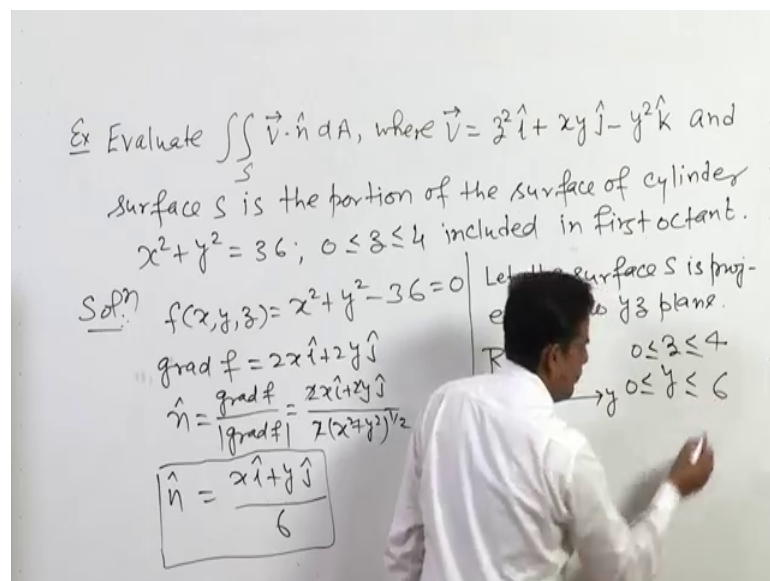 Ex Evaluate ∬_S v⃗·n̂ dA, where v⃗ = z²î + xyĵ - y²k̂ and
surface S is the portion of the surface of cylinder
x² + y² = 36; 0 ≤ z ≤ 4 included in first octant.
Solⁿ. f(x,y,z) = x² + y² - 36 = 0
grad f = 2xî + 2yĵ
n̂ = grad f / |grad f| = (2xî + 2yĵ) / 2(x² + y²)^1/2
n̂ = (xî + yĵ) / 6
surface S is proj-
yz plane.
R
0 ≤ z ≤ 4
→y 0 ≤ y ≤ 6